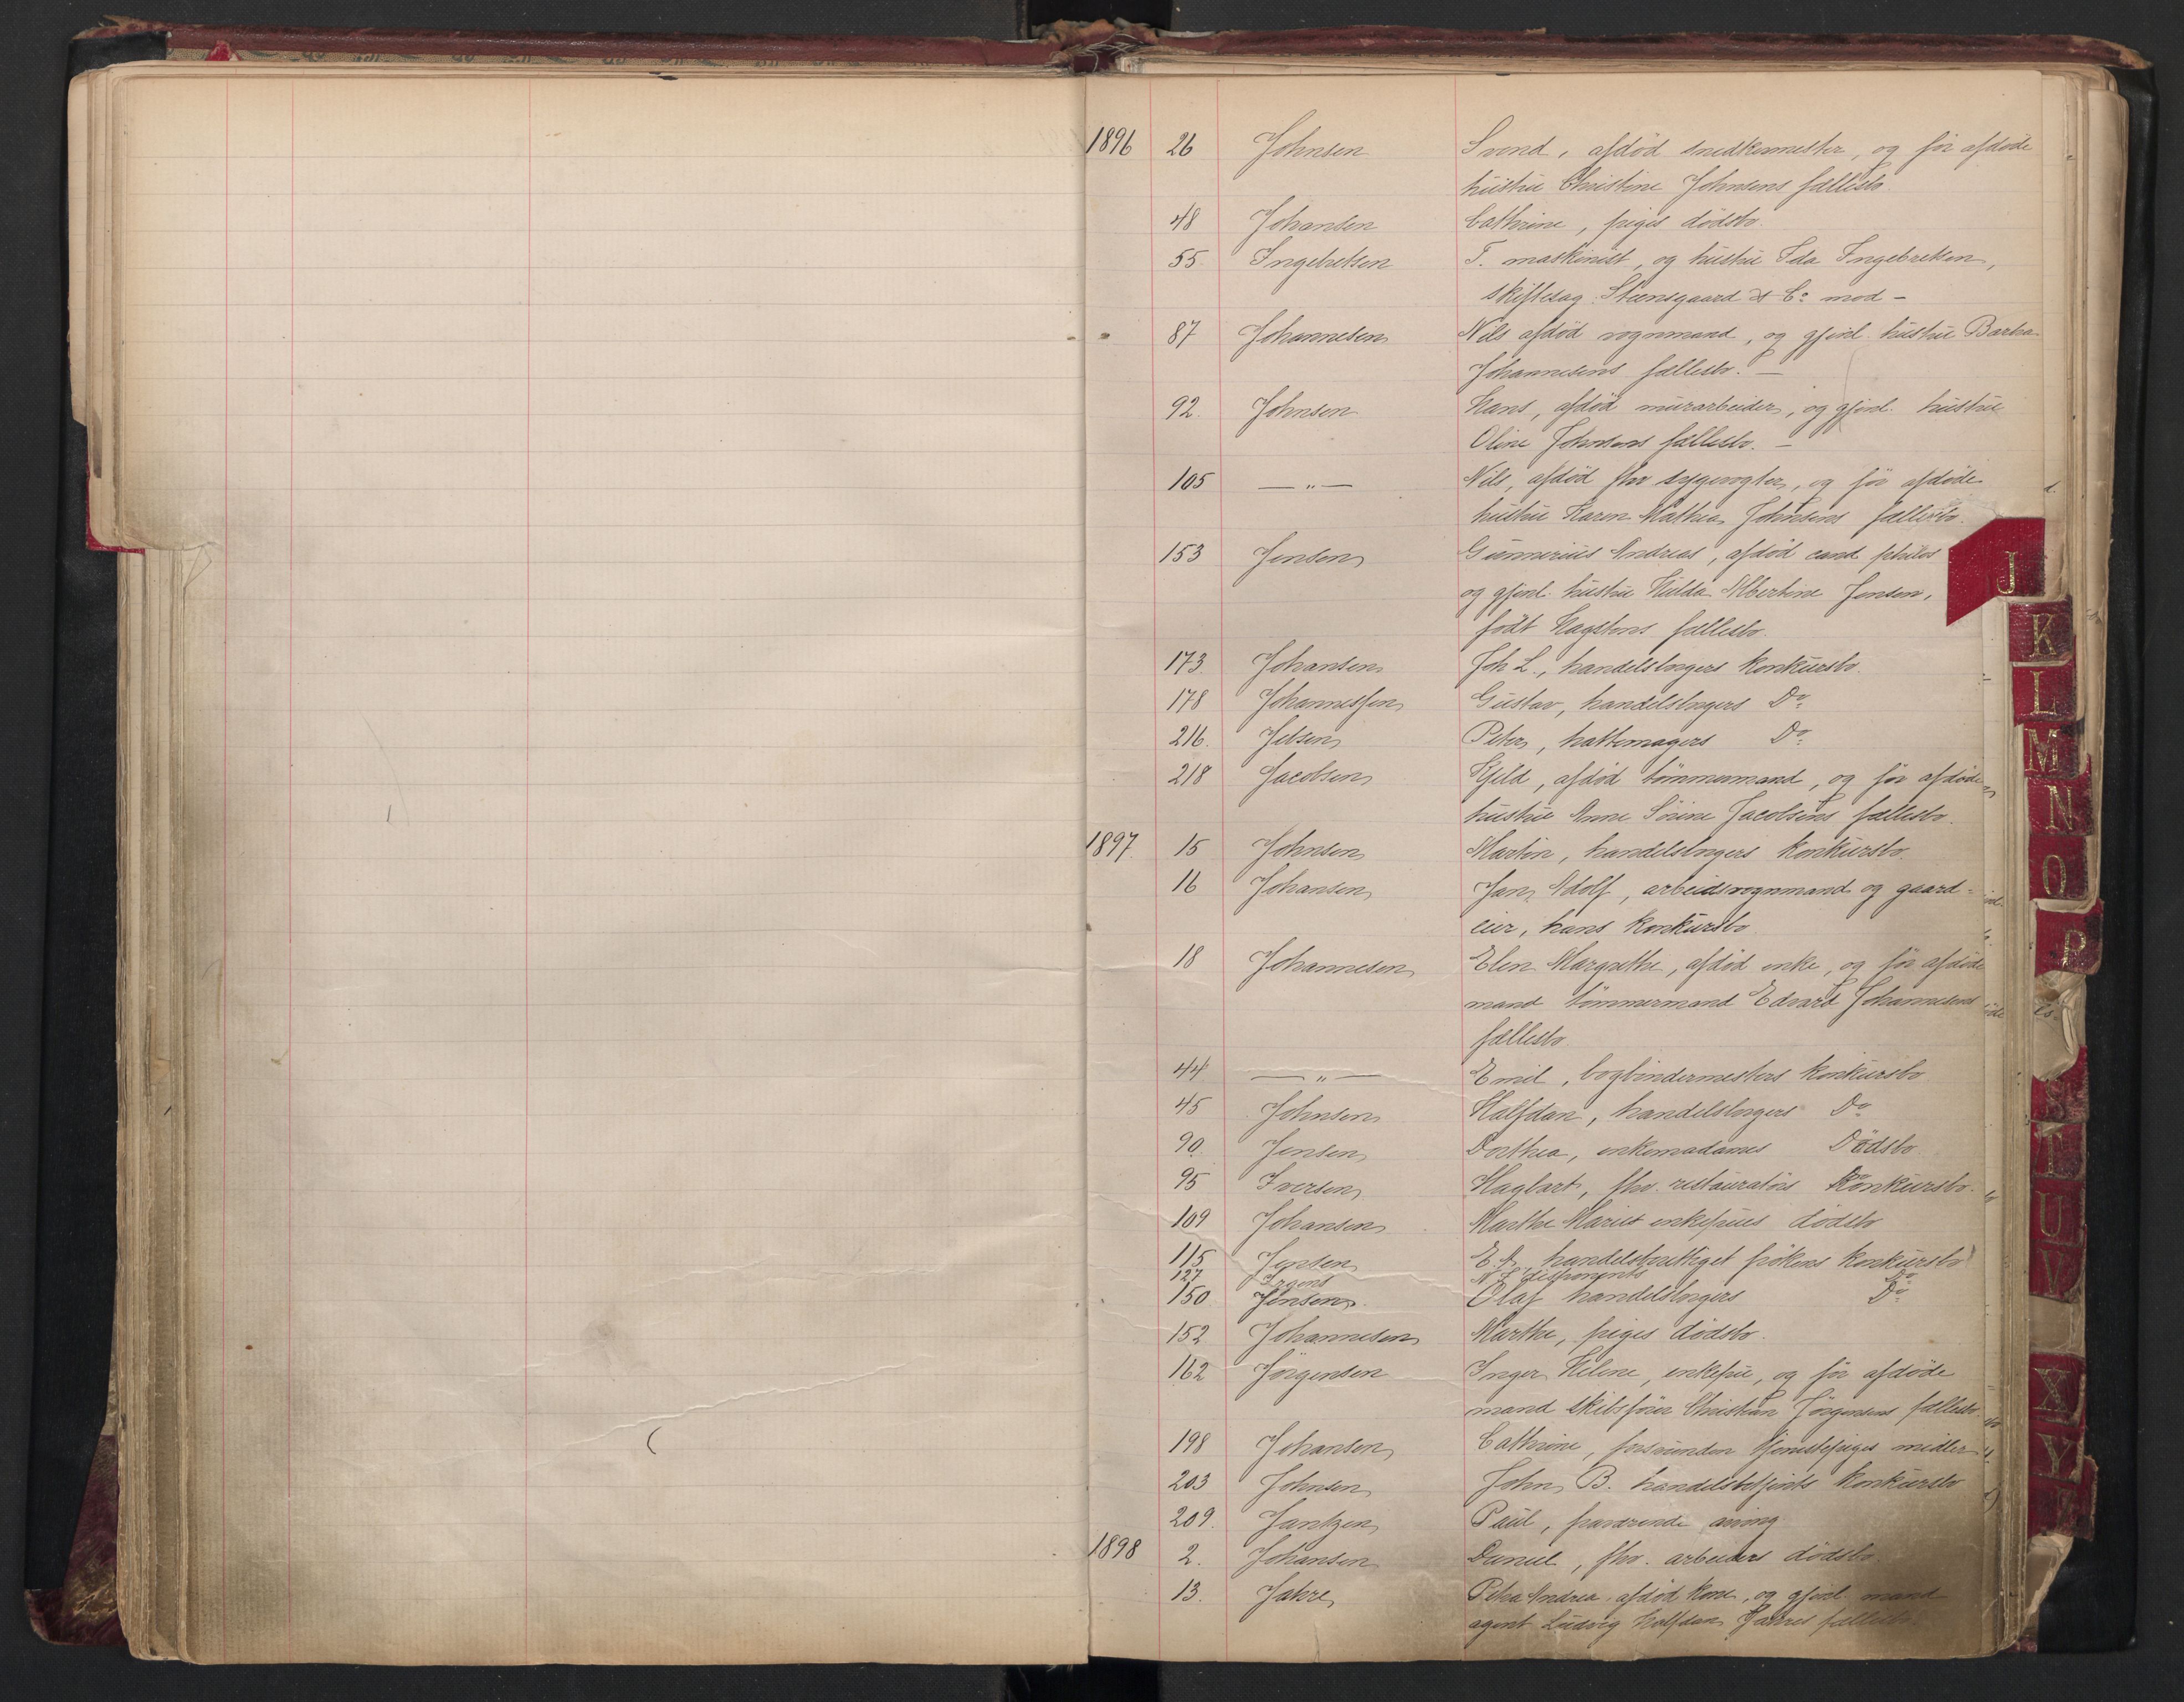 1896 26 Johnsen Svend, afdød snedkermester, og før afdøde
hustru Christine Johnsens fællesbo.
48 Johansen Cathrine, piges dødsbo.
55 Ingebretsen T. maskinist, og hustru Ida Ingebretsen,
skiftesag Steensgaard & Co mod –
87 Johannesen Nils afdød vognmand, og gjenl. hustru Barbra
Johannesens fællesbo. –
92. Johnsen Hans, afdød murarbeider, og gjenl. hustru
Oline Johnsens fællesbo. –
105 — " — Nils, afdød fhv sygevogter, og før afdøde
hustru Karen Mathea Johnsens fællesbo.
153 Jensen Gunnerius Andreas, afdød cand philos
og gjenl. hustru Hulda Albertine Jensen,
født Hagstens fællesbo.
173 Johansen Joh L., handelsbrgers konkursbo.
178 Johannessen Gustav, handelsbrgers Do
216. Jelsen Peter, hattemagers Do
218 Jacobsen Kjeld, afdød tømmermand, og før afdøde
hustru Anne Sørine Jacobsens fællesbo.
1897. 15 Johnsen Martin, handelsbrgers konkursbo.
16 Johansen, Jan Adolf, arbeidsvognmand og gaard-
eier, hans konkursbo
18 Johannesen Elen Margrethe, afdød enke, og før afdøde
mand tømmermand Edvard Johannesens
fællesbo
44 — " — Emil, bogbindermesters konkursbo
45 Johnsen Halfdan, handelsbrgers Do
90. Jensen Dorthea, enkemadames Dødsbo.
95 Iversen Hagbart, fhv. restauratørs Konkursbo.
109 Johansen Marthe Maries enkefrues dødsbo
115 Jensen E. A. handelsberettiget frøkens konkursbo
127 Irgens N. J. disponents Do
150 Jensen Olaf handelsbrgers Do
152 Johannesen Marthe, piges dødsbo.
162 Jørgensen Inger Helene, enkefrue, og før afdøde
mand skibsfører Christian Jørgensens fællesbo.
198 Johansen Cathrine, forsvunden tjenestepiges midler
203 Johnsen John B. handelsbetjents konkursbo
209. Jantzen Paul, fraværende arving
1898 2. Johansen Daniel, fhv. arbeiders dødsbo.
13. Jahre Petra Andrea, afdød kone, og gjenl mand
agent Ludvig Halfdan Jahres fællesbo
J
K
L
M
N
O
P
S
T
U
V
X
Y